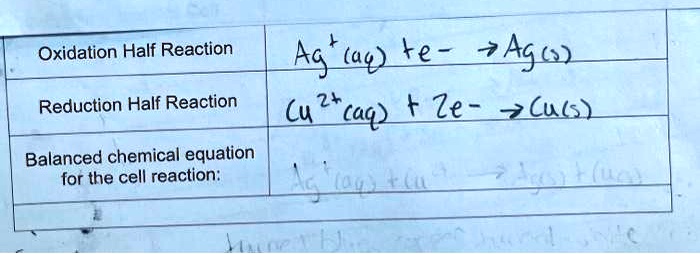 Oxidation Half Reaction Ag⁺(aq) + e- → Ag(s)
Reduction Half Reaction Cu²⁺(aq) + 2e- → Cu(s)
Balanced chemical equation
for the cell reaction: Ag⁺(aq) + Cu²⁺ → Ag(s) + Cu(s)